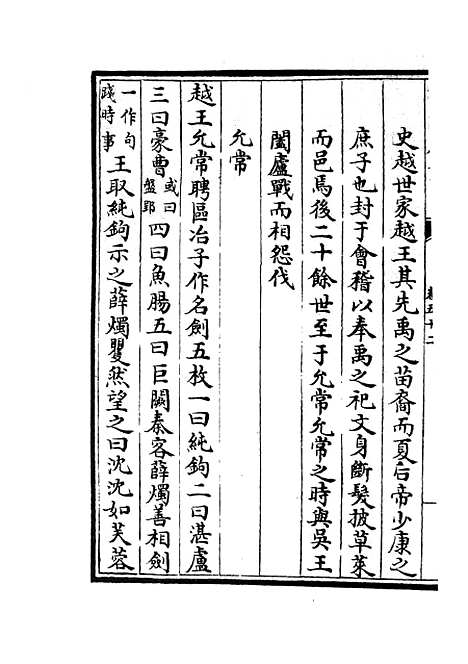 史越世家越王其先禹之苗裔而夏后帝少康之
庶子也封于會稽以奉禹之祀文身斷髮披草萊
而邑焉後二十餘世至于允常允常之時與吳王
闔廬戰而相怨伐
允常
越王允常聘區冶子作名劍五枚一曰純鉤二曰湛盧
三曰豪曹或曰盤郢四曰魚腸五曰巨闕秦客薛燭善相劍
一作句踐時事王取純鉤示之薛燭矍然望之曰沈沈如芙蓉